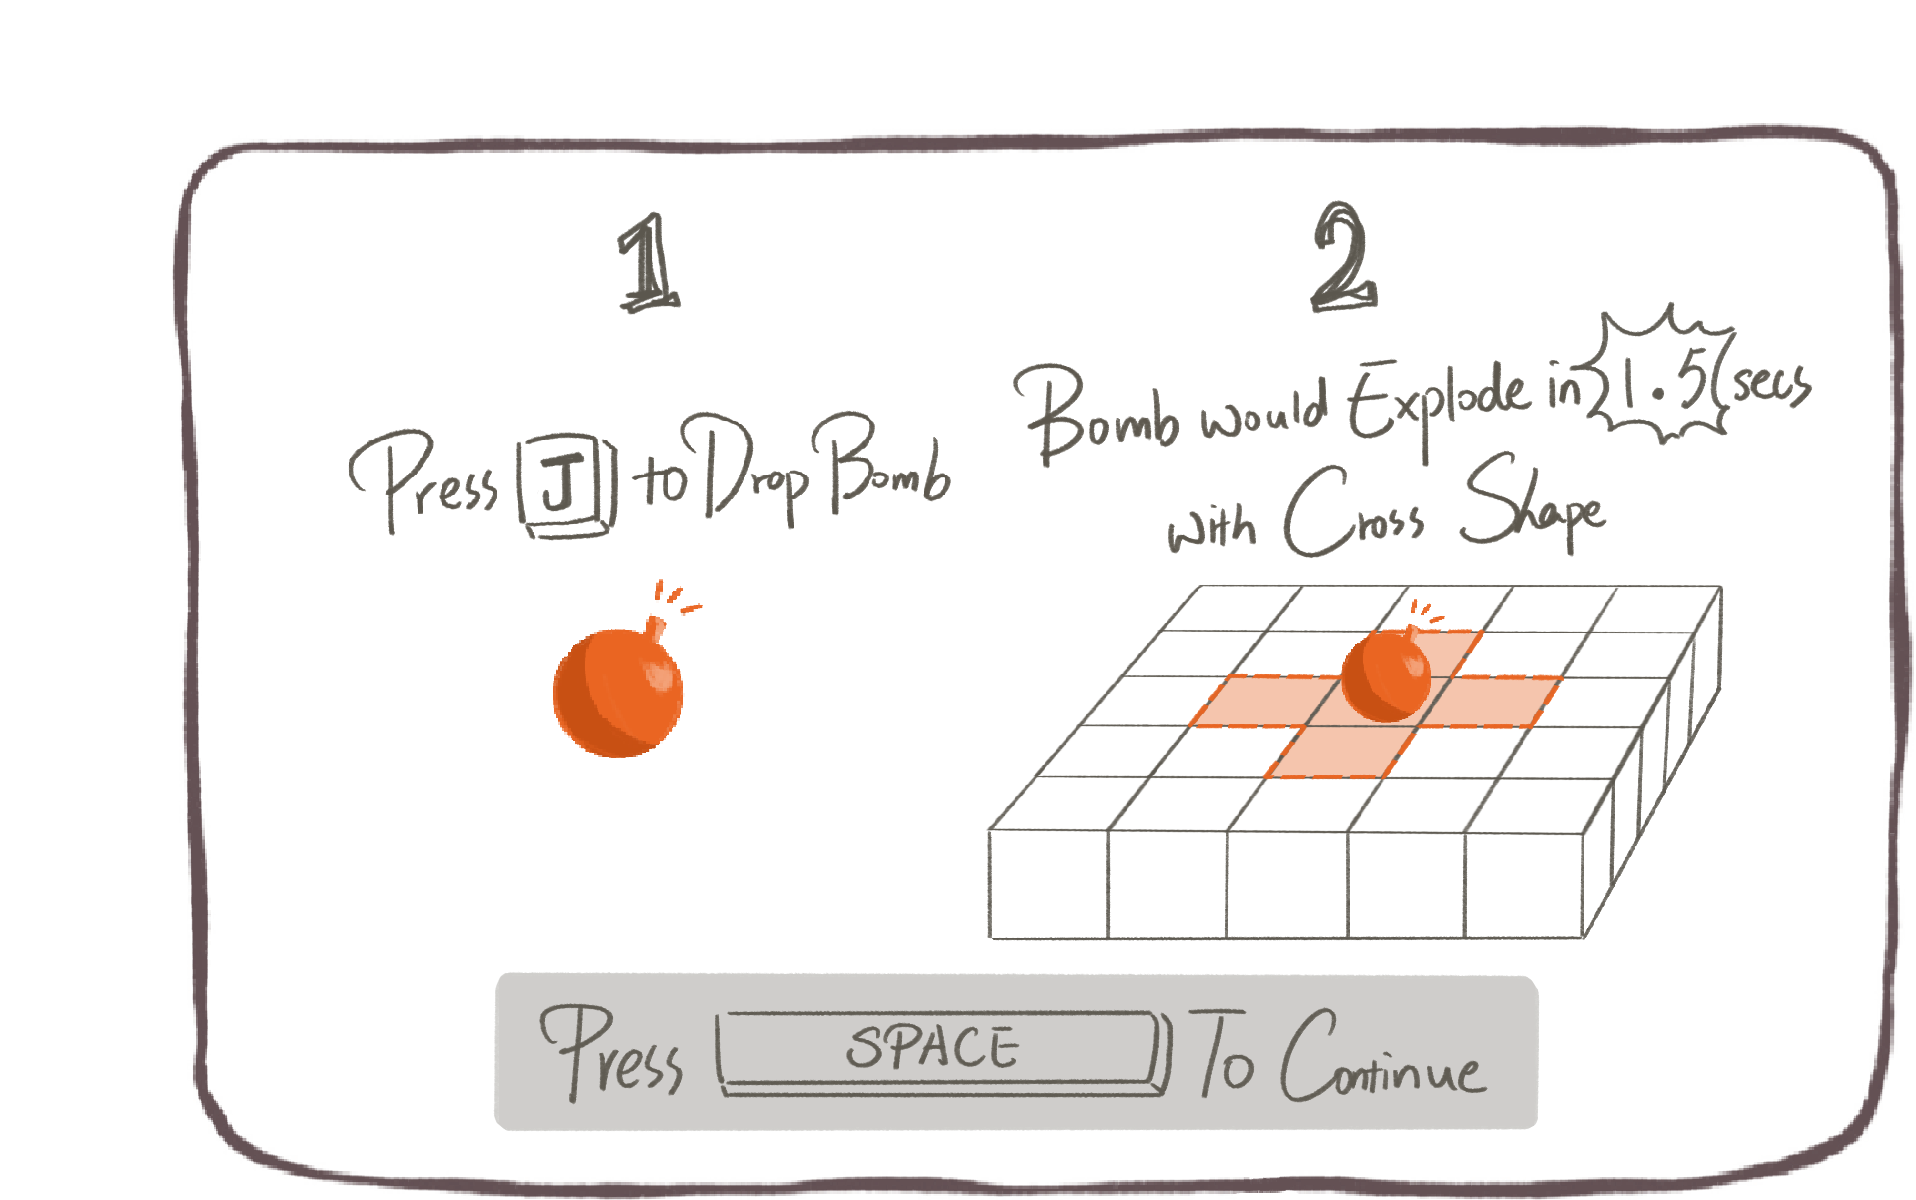 1
Press J to Drop Bomb
2
Bomb would Explode in 1.5 secs
with Cross Shape
Press SPACE To Continue